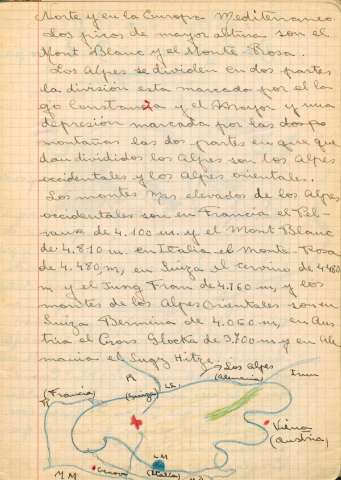 Norte y en la Europa Mediterraneo.
Los picos de mayor altura son el
Mont Blanc y el Monte Rosa.
Los Alpes se dividen en dos partes
la división esta marcado por el la
go Constanza y el Mayor y una
depresión marcada por las dos
montañas las dos partes en que que
dan divididos los Alpes son los Alpes
occidentales y los Alpes orientales.
Los montes mas elevados de los Alpes
occidentales son en Francia el Pel-
vaux de 4.100 m. y el Mont Blanc
de 4.810 m. en Italia el monte Rosa
de 4.480 m, en Suiza el 4.480
m y el Jung Fran de 4.160 m, y los
montes de los Alpes Orientales son en
Suiza Bermina de 4.050 m, en Aus
tria el Glocka de 3.700 m y en Ale
mania el Sugg Hitze.
Los Alpes
(Francia)
R
(Suiza)
(Alemania)
Inun
Viena
(Austria)
LM
M M
Genova
(Italia)